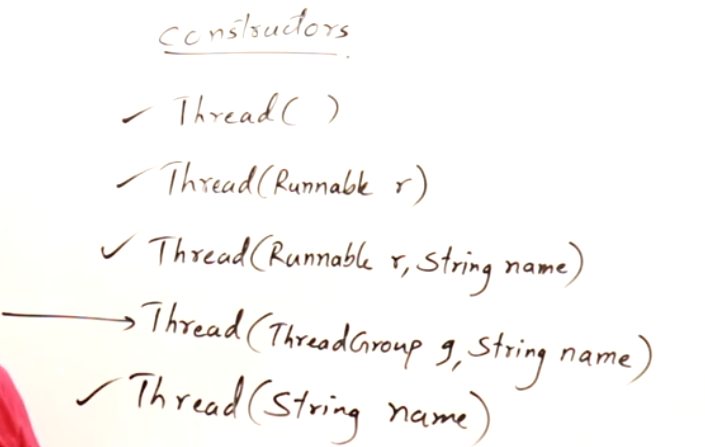 Constructors
✓ Thread( )
✓ Thread(Runnable r)
✓ Thread(Runnable r, String name)
→ Thread(ThreadGroup g, String name)
✓ Thread(String name)